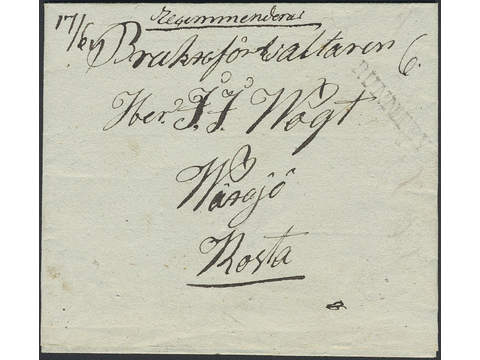 Recommenderas
17/6 44
Bruksförvaltaren 6.
Herr J. J. Wogt
Wärsjö
Kosta